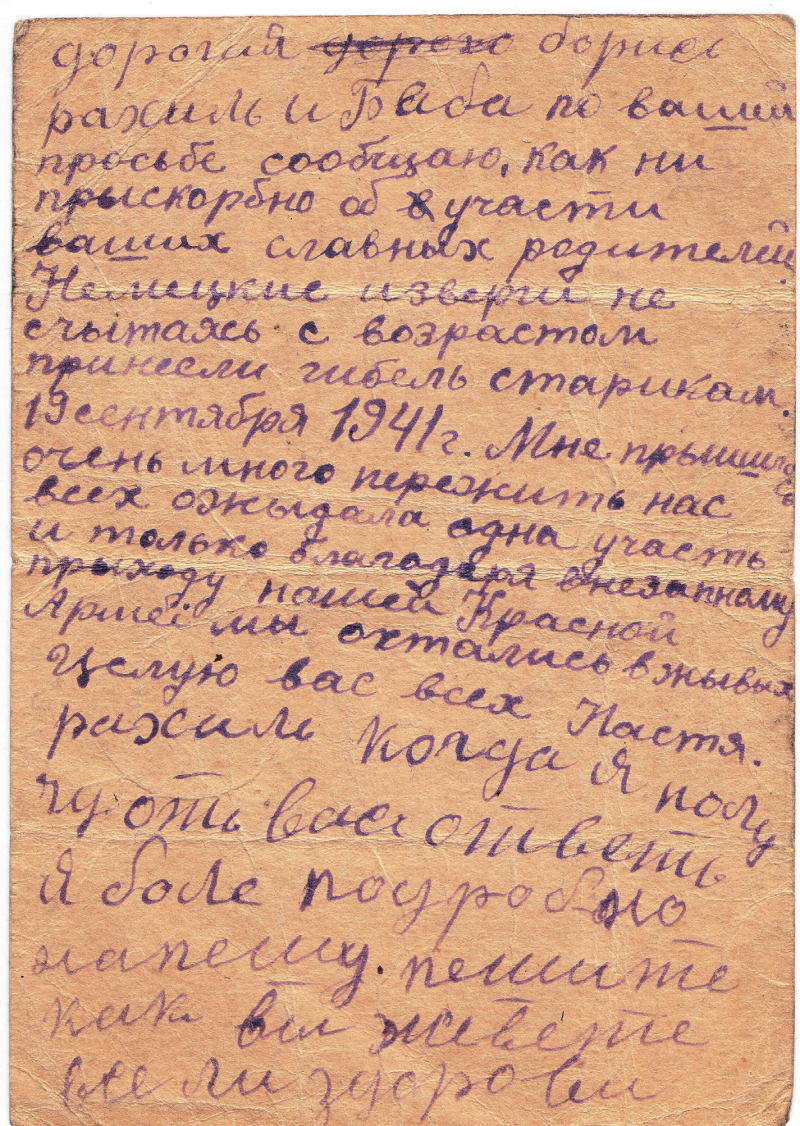 дорогия дорохо борись
рахиль и Баба по вашей
просьбе сообщаю, как ни
прыскорбно об участи
ваших славных родителей
Немецкие изверги не
счытаясь с возрастом
принесли гибель старикам.
19 сентября 1941 г. Мне прышлось
очень много пережить нас
всех ожыдала одна участь
и только благодаря внезапному
прыходу нашей Красной
Армеі мы охтались вжывых
Целую вас всех Настя.
рахиль когда я полу
чу оть вас ответь
я боле подробно
напешу. пешите
как ви живете
все ли здорови